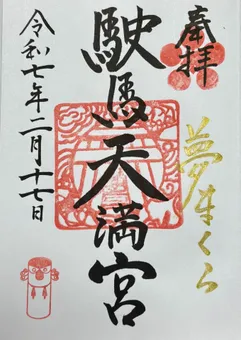 奉拝
夢まくら
駛馬天満宮
令和七年二月十七日